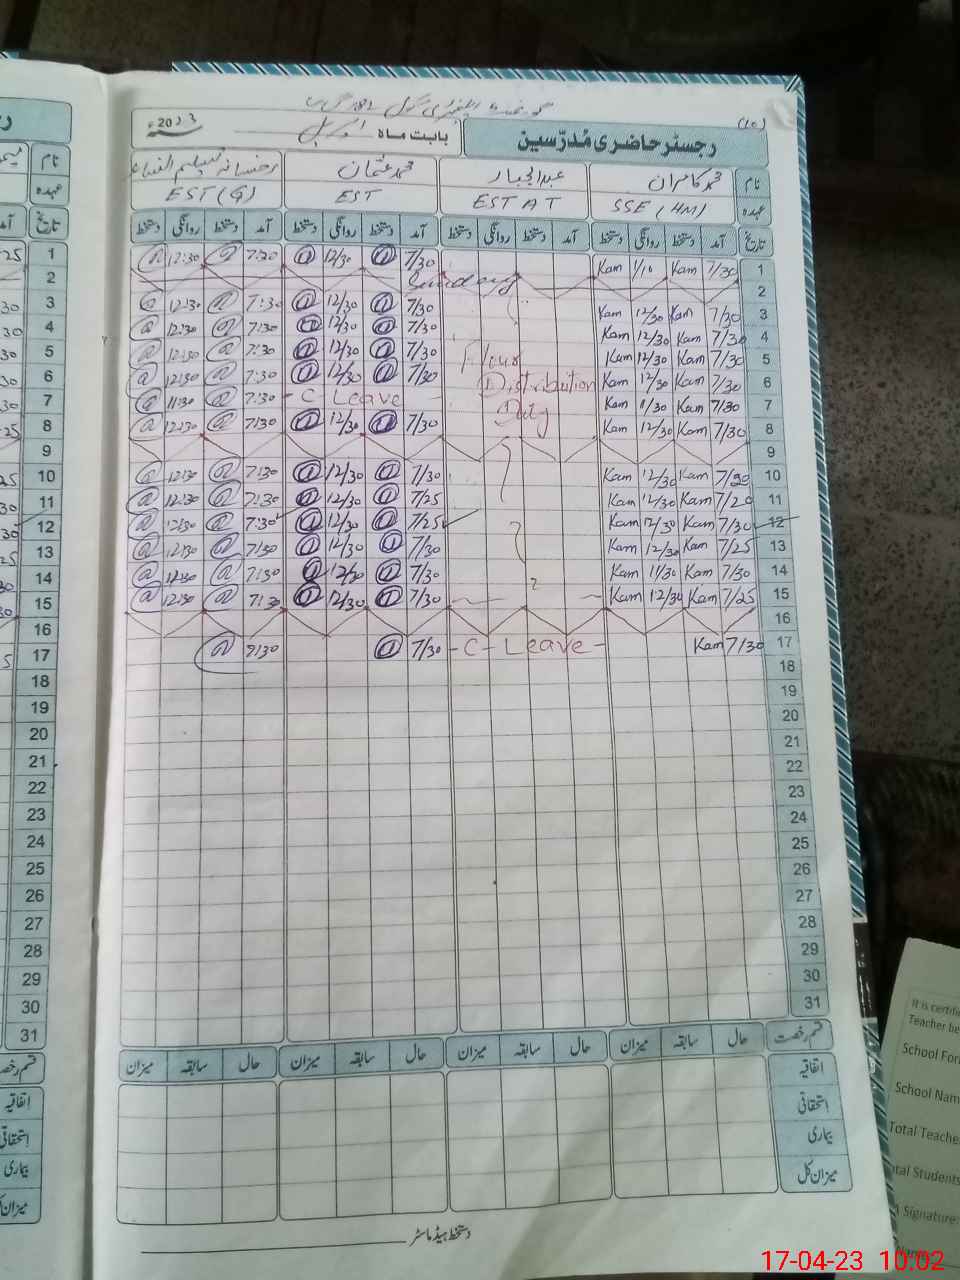 (10)
رجسٹر حاضری مُدرّسین
بابت ماہ اپریل 2023ء
نام محمد کامران عبدالجبار محمد عثمان رخسانہ
عہدہ SSE (HM) EST A T EST EST (G)
تاریخ آمد دستخط روانگی دستخط آمد دستخط روانگی دستخط آمد دستخط روانگی دستخط آمد دستخط روانگی دستخط
1 7/30 Kam 1/10 Kam 7/30 12/30 7:20 12:30
2 Sunday
3 7/30 Kam 12/30 Kam 7/30 12/30 7:30 12:30
4 7/30 Kam 12/30 Kam 7/30 12/30 7:30 12:30
5 7/30 Kam 12/30 Kam Flour 7/30 12/30 7:30 12:30
6 7/30 Kam 12/30 Kam Distribution 7/30 12/30 7:30 12:30
7 7/30 Kam 11/30 Kam Duty - C Leave - 7:30 11:30
8 7/30 Kam 12/30 Kam 7/30 12/30 7:30 12:30
9
10 7/20 Kam 12/30 Kam 7/30 12/30 7:30 12:30
11 7/20 Kam 12/30 Kam 7/25 12/30 7:30 12:30
12 7/30 Kam 12/30 Kam 7/25 12/30 7:30 12:30
13 7/25 Kam 12/30 Kam 7/30 12/30 7:30 12:30
14 7/30 Kam 11/30 Kam 7/30 12/30 7:30 12:30
15 7/25 Kam 12/30 Kam 7/30 12/30 7:30 12:30
16
17 7/30 Kam - C - Leave - 7/30 7:30
18
19
20
21
22
23
24
25
26
27
28
29
30
31
قسم رخصت حال سابقہ میزان حال سابقہ میزان حال سابقہ میزان حال سابقہ میزان
اتفاقیہ
استحقاقی
بیماری
میزان کل
دستخط ہیڈ ماسٹر
It is certifi
Teacher be
School For
School Nam
Total Teache
tal Students
Signature:
Name
17-04-23 10:02